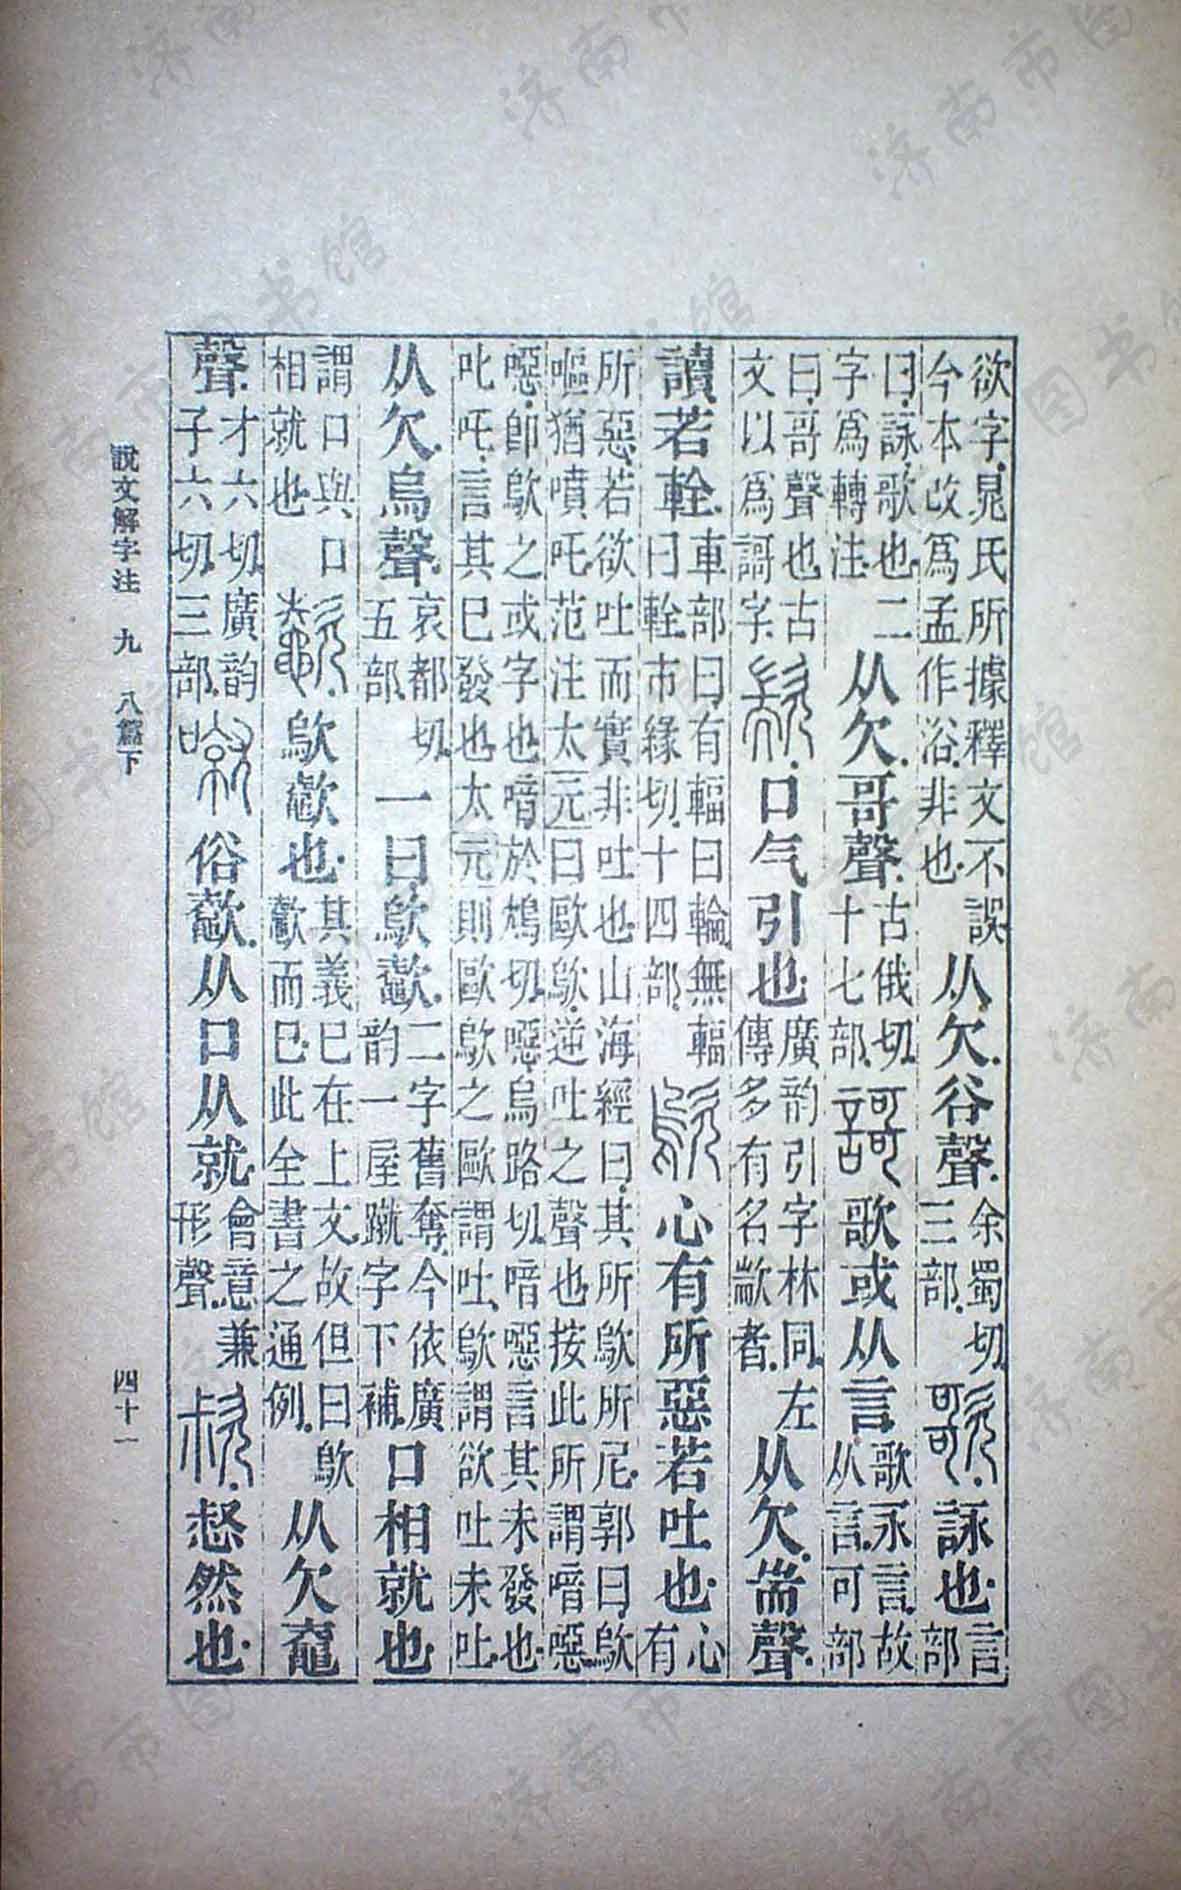 欲字晁氏所據釋文不誤今本改爲孟作浴非也从欠谷聲余蜀切三部歌詠也言部
曰詠歌也二字爲轉注从欠哥聲古俄切十七部謌歌或从言歌永言故从言可部
曰哥聲也古文以爲謌字歂口气引也廣韵引字林同左傳多有名歂者从欠耑聲
讀若輇車部曰有輻曰輪無輻曰輇市緣切十四部歍心有所惡若吐也心有
所惡若欲吐而實非吐也山海經曰其所歍所尼郭曰歍嘔猶噴吒范注太元曰歐歍逆吐之聲也按此所謂喑噁
噁卽歍之或字也喑於鴆切噁烏路切喑噁言其未發也叱吒言其巳發也太元則歐歍之歐謂吐歍謂欲吐未吐
从欠烏聲哀都切五部一曰歍𣤶二字舊奪今依廣韵一屋蹴字下補口相就也
謂口與口相就也𣤶歍𣤶也其義已在上文故但曰歍𣤶而已此全書之通例从欠
聲才六切廣韵子六切三部噈俗𣤶从口从就會意兼形聲惄然也
說文解字注 九 八篇下 四十一
济南市图书馆